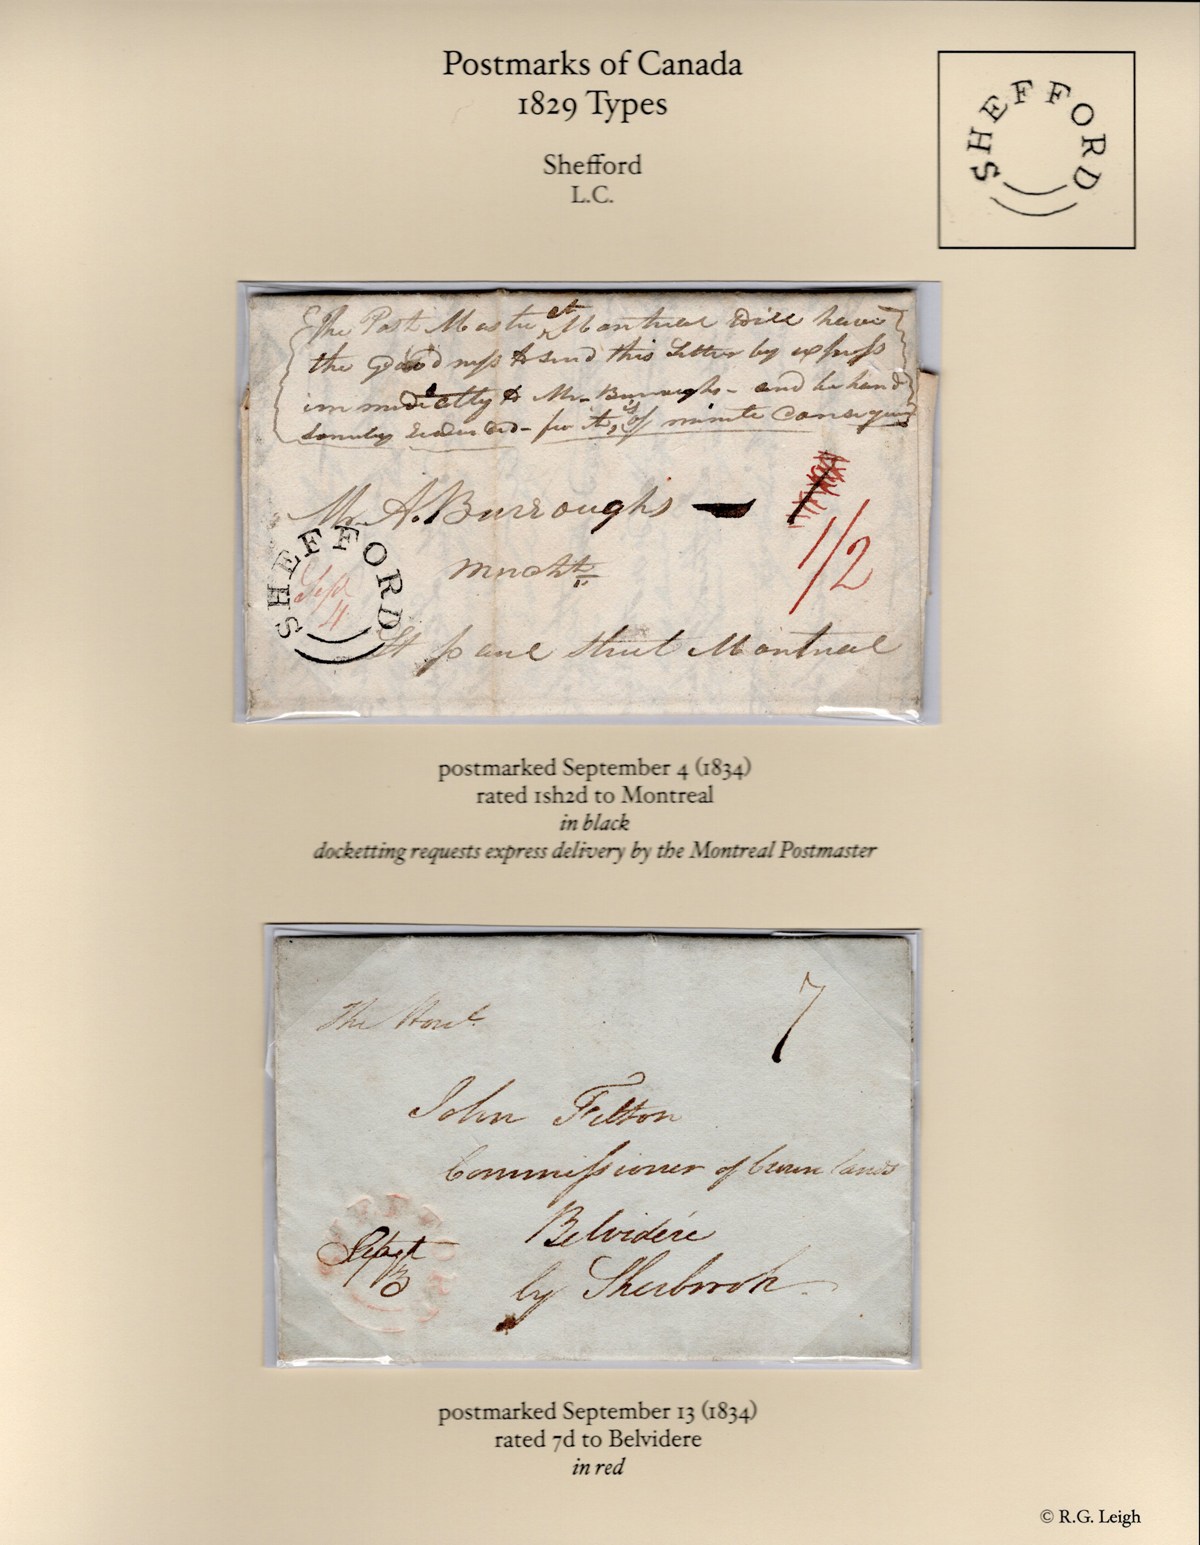 Postmarks of Canada
1829 Types
Shefford
L.C.
SHEFFORD
The Post Master at Montreal will have
the goodness to send this Letter by express
immediatly to Mr Burroughs - and be hand
for it is of minute Consequ
Mr A. Burroughs
1/2
SHEFFORD
Sept
4
St paul Street Montreal
postmarked September 4 (1834)
rated 1sh2d to Montreal
in black
docketting requests express delivery by the Montreal Postmaster
The Honl.
7
John Felton
Commissioner of Crown lands
Belvidere
by Sherbrook
SHEFFORD
Sept
13
postmarked September 13 (1834)
rated 7d to Belvidere
in red
© R.G. Leigh